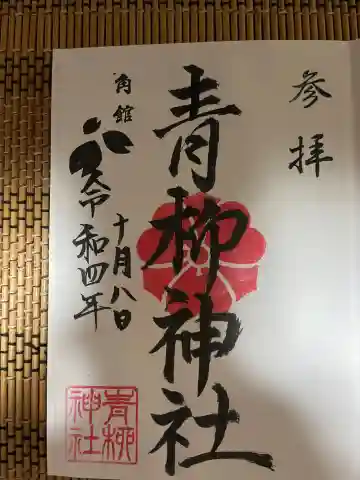 参拝
青柳神社
角館
令和四年
十月八日
青柳
神社